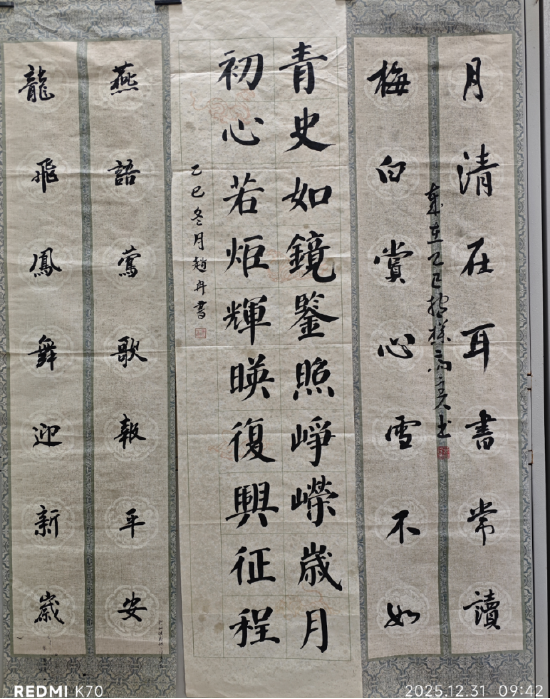 月清在耳書常讀
歲在乙巳
梅白賞心雪不如
青史如鏡鑒照崢嶸歲月
初心若炬輝暎復興征程
乙巳冬月趙丹書
燕語鶯歌報平安
龍飛鳳舞迎新歲
REDMI K70
2025.12.31 09:42